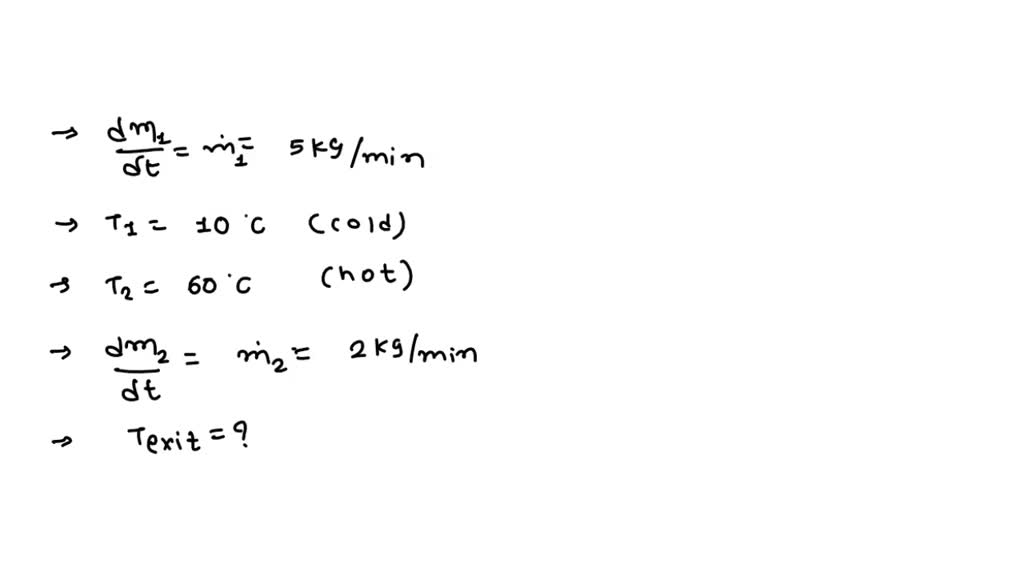 → dm₁/dt = ṁ₁ = 5 kg/min
→ T₁ = 10 °C (cold)
→ T₂ = 60 °C (hot)
→ dm₂/dt = ṁ₂ = 2 kg/min
→ Texit = ?